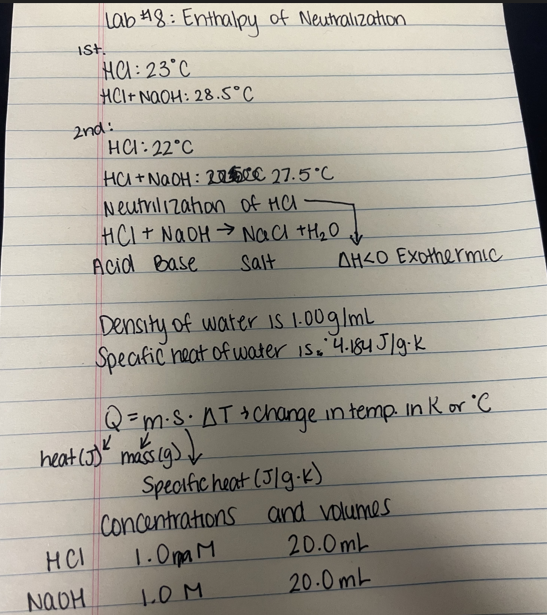 Lab #8: Enthalpy of Neutralization
1st.
HCl: 23°C
HCl+NaOH: 28.5°C
2nd:
HCl: 22°C
HCl + NaOH: 27.5°C
Neutrilization of HCl
HCl + NaOH → NaCl + H2O
Acid Base Salt ΔH<0 Exothermic
Density of water is 1.00g/mL
Specific heat of water is: 4.184 J/g·K
Q = m·s·ΔT → change in temp. in K or °C
heat(J) mass(g)
Specific heat (J/g·K)
Concentrations and volumes
HCl 1.0 M 20.0mL
NaOH 1.0 M 20.0mL